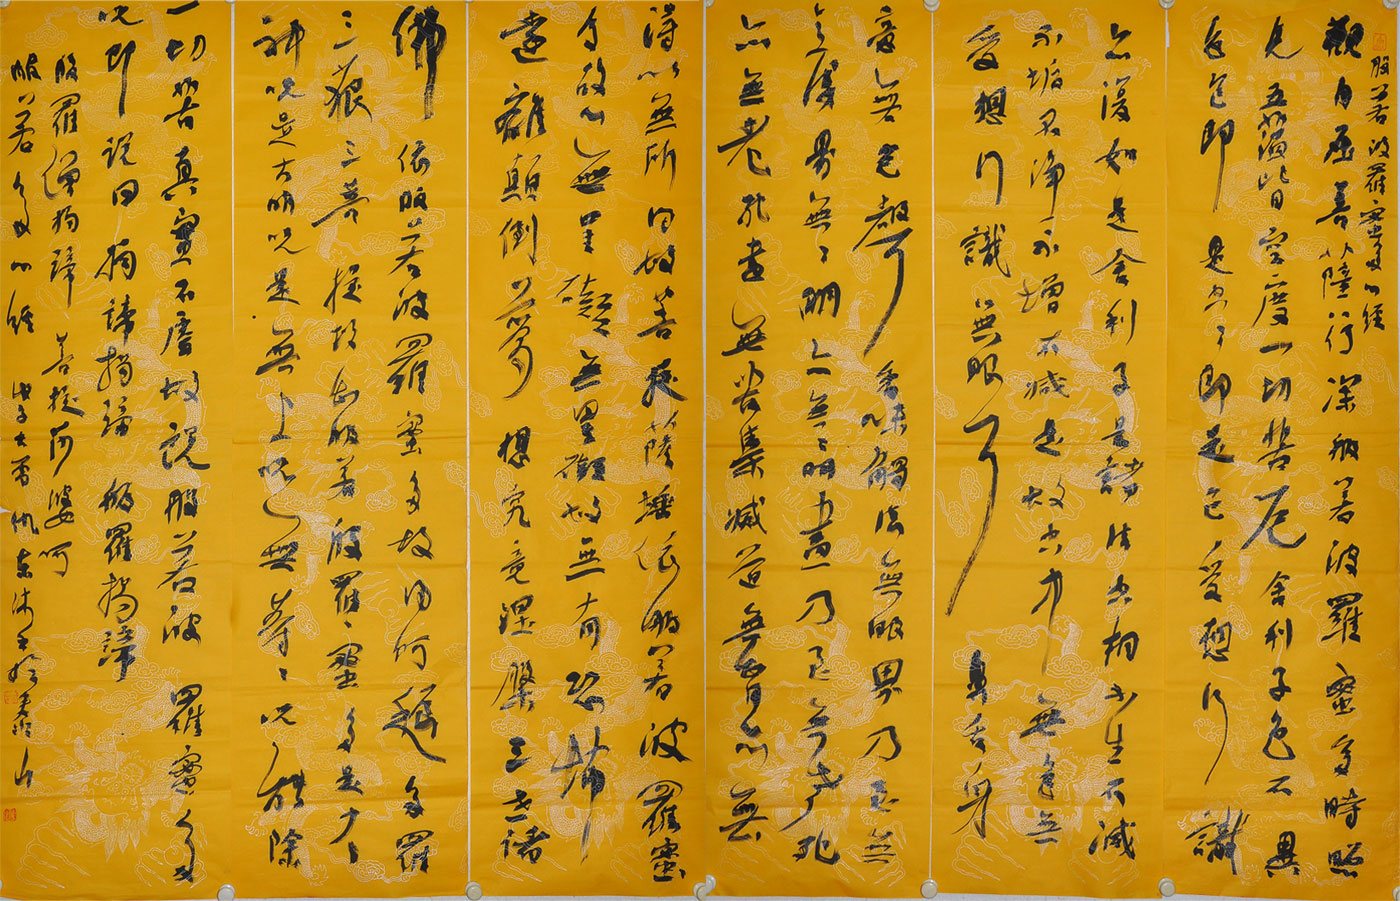 般若波羅蜜多心經
觀自在菩薩行深般若波羅蜜多時照
見五蘊皆空度一切苦厄舍利子色不異
空色即是空〻即是色受想行識
亦復如是舍利子是諸法空相不生不滅
不垢不淨不增不減是故空中無色無
受想行識無眼耳鼻舌身
意無色聲香味觸法無眼界乃至無
意識界無〻明亦無〻明盡乃至無老死
亦無老死盡無苦集滅道無智亦無
得以無所得故菩提薩埵依般若波羅蜜
多故心無罣礙無罣礙故無有恐怖
遠離顛倒夢想究竟涅槃三世諸
佛依般若波羅蜜多故得阿耨多羅
三藐三菩提故知般若般羅蜜多是大〻
神咒是大明咒是無上咒是無等〻咒能除
一切苦真實不虛故說般若波羅蜜多
咒即說曰揭諦揭諦般羅揭諦
般羅僧揭諦菩提莎婆訶
般若多心經戊子大雪